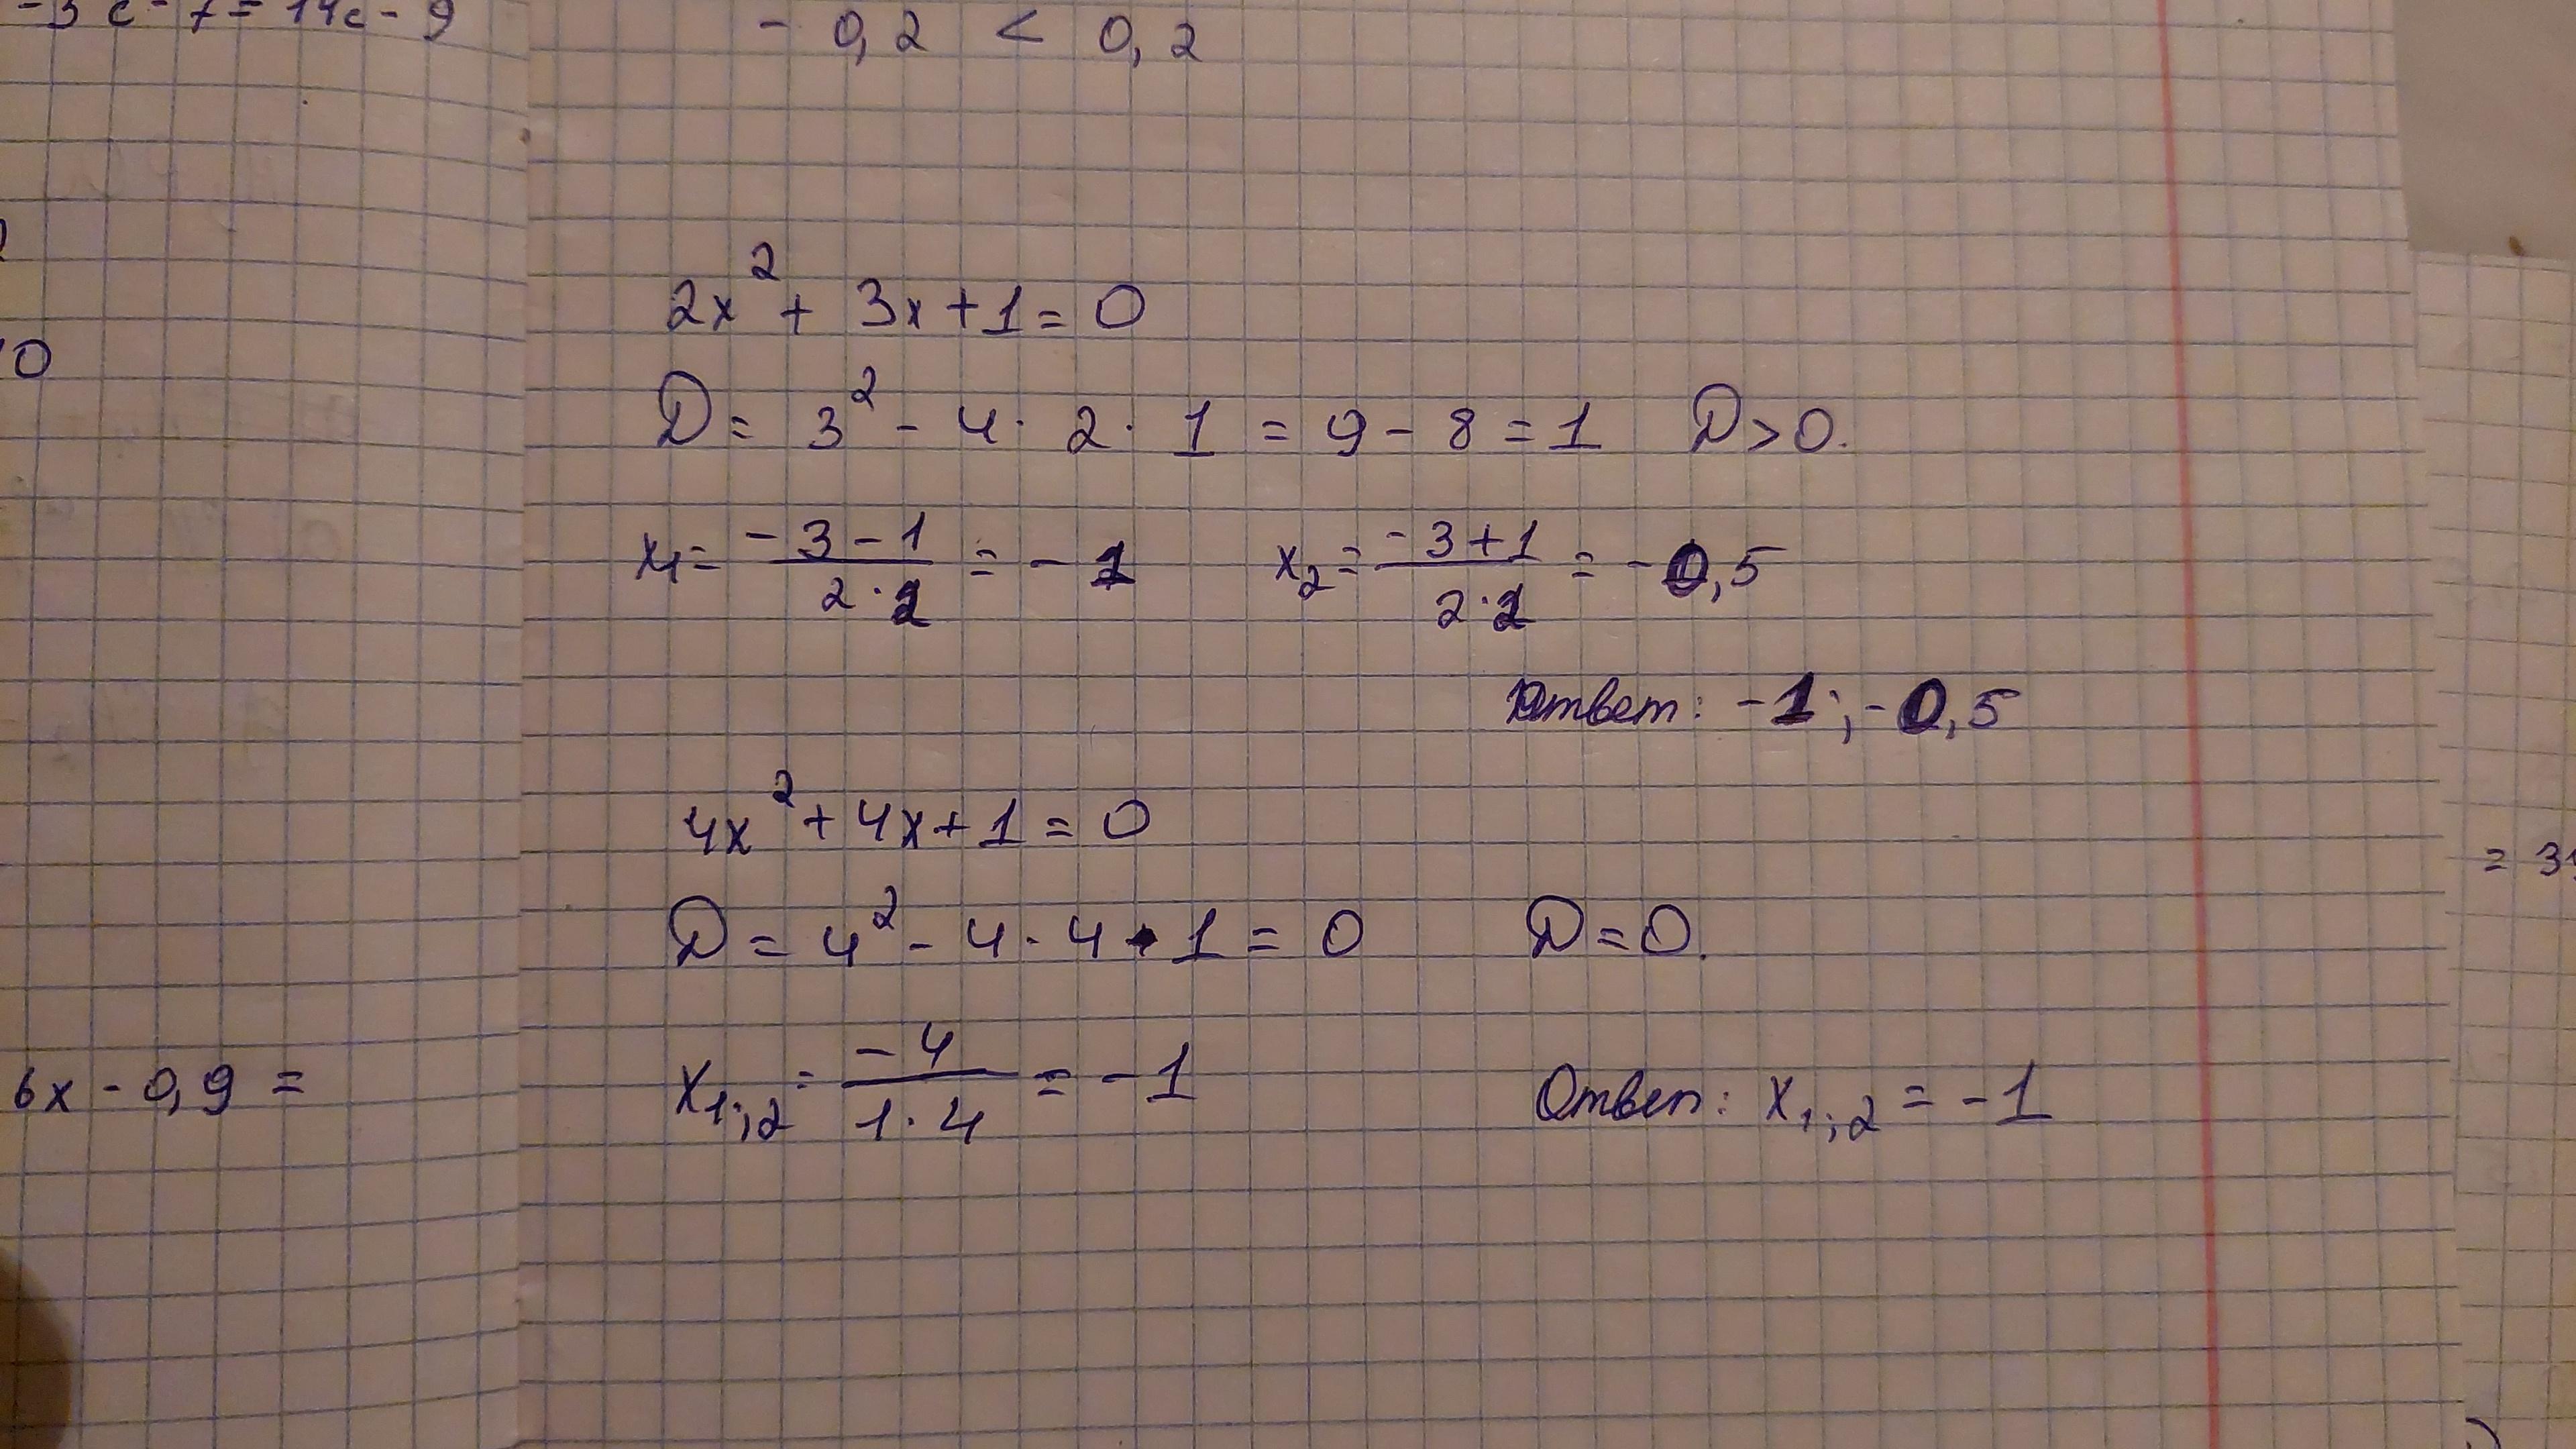 -3c-7=14c-9
-0,2 < 0,2
0
2x²+3x+1=0
D=3²-4·2·1=9-8=1 D>0.
x₁=(-3-1)/(2·2)=-1 x₂=(-3+1)/(2·2)=-0,5
Ответ: -1;-0,5
4x²+4x+1=0
= 3
D=4²-4·4·1=0 D=0.
6x-0,9=
x₁;₂=(-4)/(1·4)=-1 Ответ: x₁;₂=-1